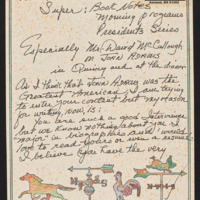 Super: Book Notes
Morning programs
Presidents Series
Especially Mr. David McCullough
on John Adams
in Quincy and at the
As I think that John Adams was the
Greatest American I am trying
to enter your contest but my reason
for writing now is:
You are such a good Interviewer
but we know nothing about you,
major biographies and I would
love to read or even a
I believe you have the very
N W S